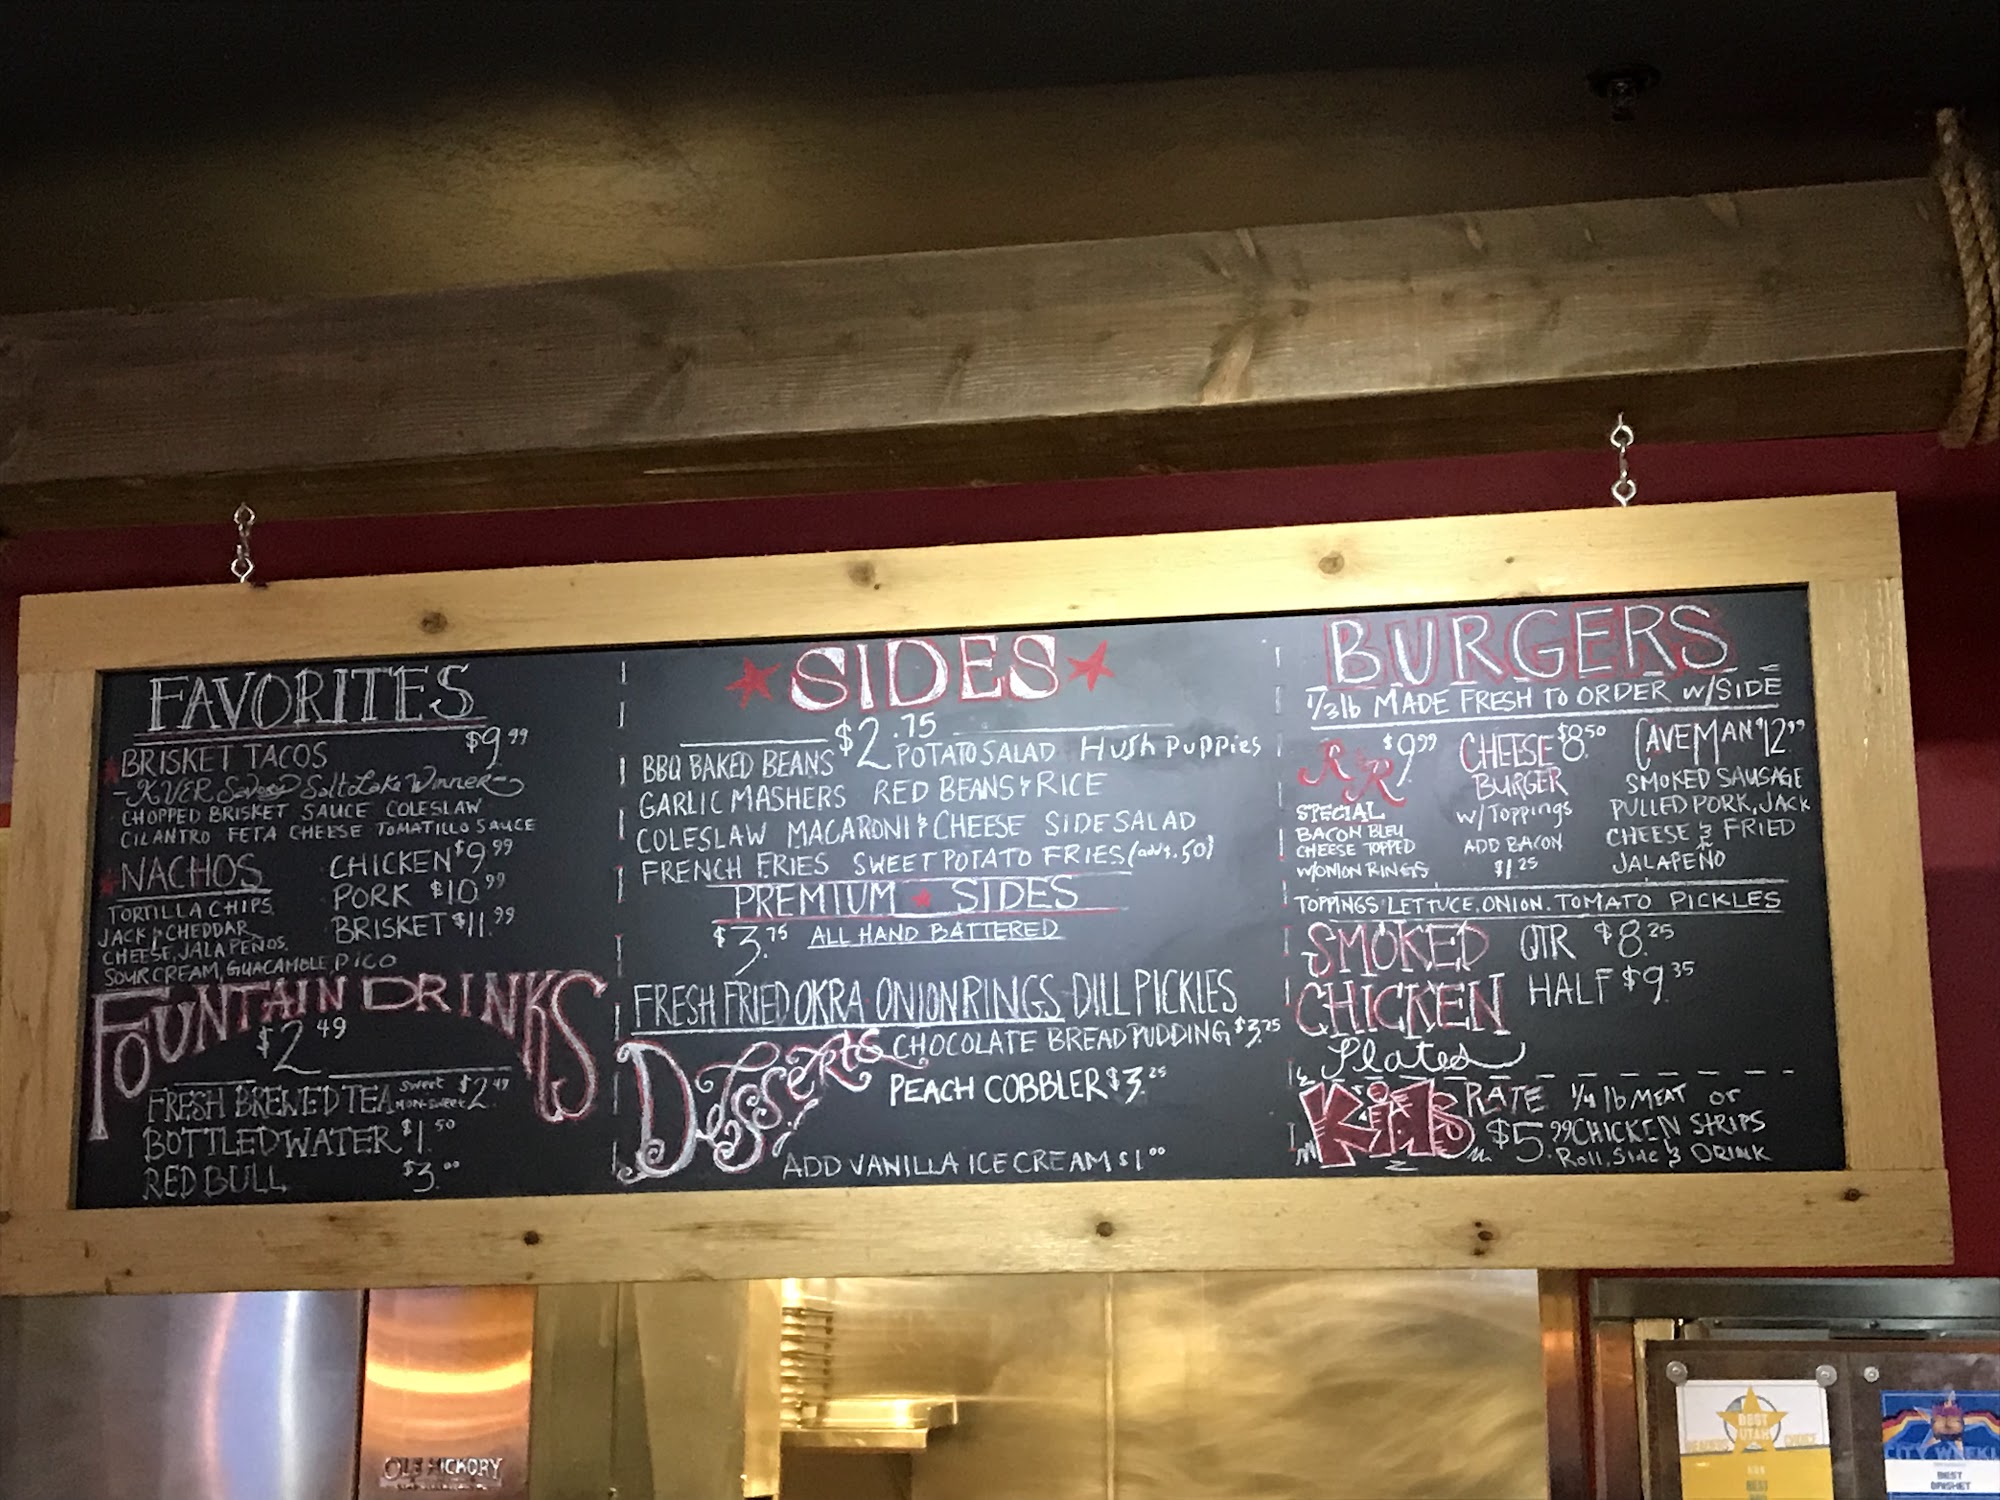 FAVORITES
BRISKET TACOS $9.99
-KUER Salt Lake Winner-
CHOPPED BRISKET SAUCE COLESLAW
CILANTRO FETA CHEESE TOMATILLO SAUCE
NACHOS
CHICKEN $9.99
PORK $10.99
BRISKET $11.99
TORTILLA CHIPS
JACK & CHEDDAR
CHEESE, JALAPEÑOS,
SOUR CREAM, GUACAMOLE, PICO
FOUNTAIN DRINKS
$2.49
FRESH BREWED TEA SWEET NON-SWEET $2.49
BOTTLED WATER $1.50
RED BULL $3.00
SIDES
$2.75
BBQ BAKED BEANS POTATO SALAD Hush Puppies
GARLIC MASHERS RED BEANS & RICE
COLESLAW MACARONI & CHEESE SIDE SALAD
FRENCH FRIES SWEET POTATO FRIES (add $.50)
PREMIUM SIDES
$3.75 ALL HAND BATTERED
FRESH FRIED OKRA · ONION RINGS · DILL PICKLES
Desserts
CHOCOLATE BREAD PUDDING $3.25
PEACH COBBLER $3.25
ADD VANILLA ICE CREAM $1.00
BURGERS
1/3 lb MADE FRESH TO ORDER W/SIDE
R&R $9.99
SPECIAL
BACON BLEU
CHEESE TOPPED
W/ONION RINGS
CHEESE $8.50
BURGER
W/Toppings
ADD BACON
$1.25
CAVEMAN $12.99
SMOKED SAUSAGE
PULLED PORK, JACK
CHEESE & FRIED
JALAPEÑO
TOPPINGS: LETTUCE, ONION, TOMATO PICKLES
SMOKED
CHICKEN
Plates
QTR $8.25
HALF $9.35
KIDS PLATE 1/4 lb MEAT or
$5.99 CHICKEN STRIPS
Roll, Side & DRINK
OLE HICKORY
BEST
UTAH
CITY WEEKLY
BEST
BRISKET